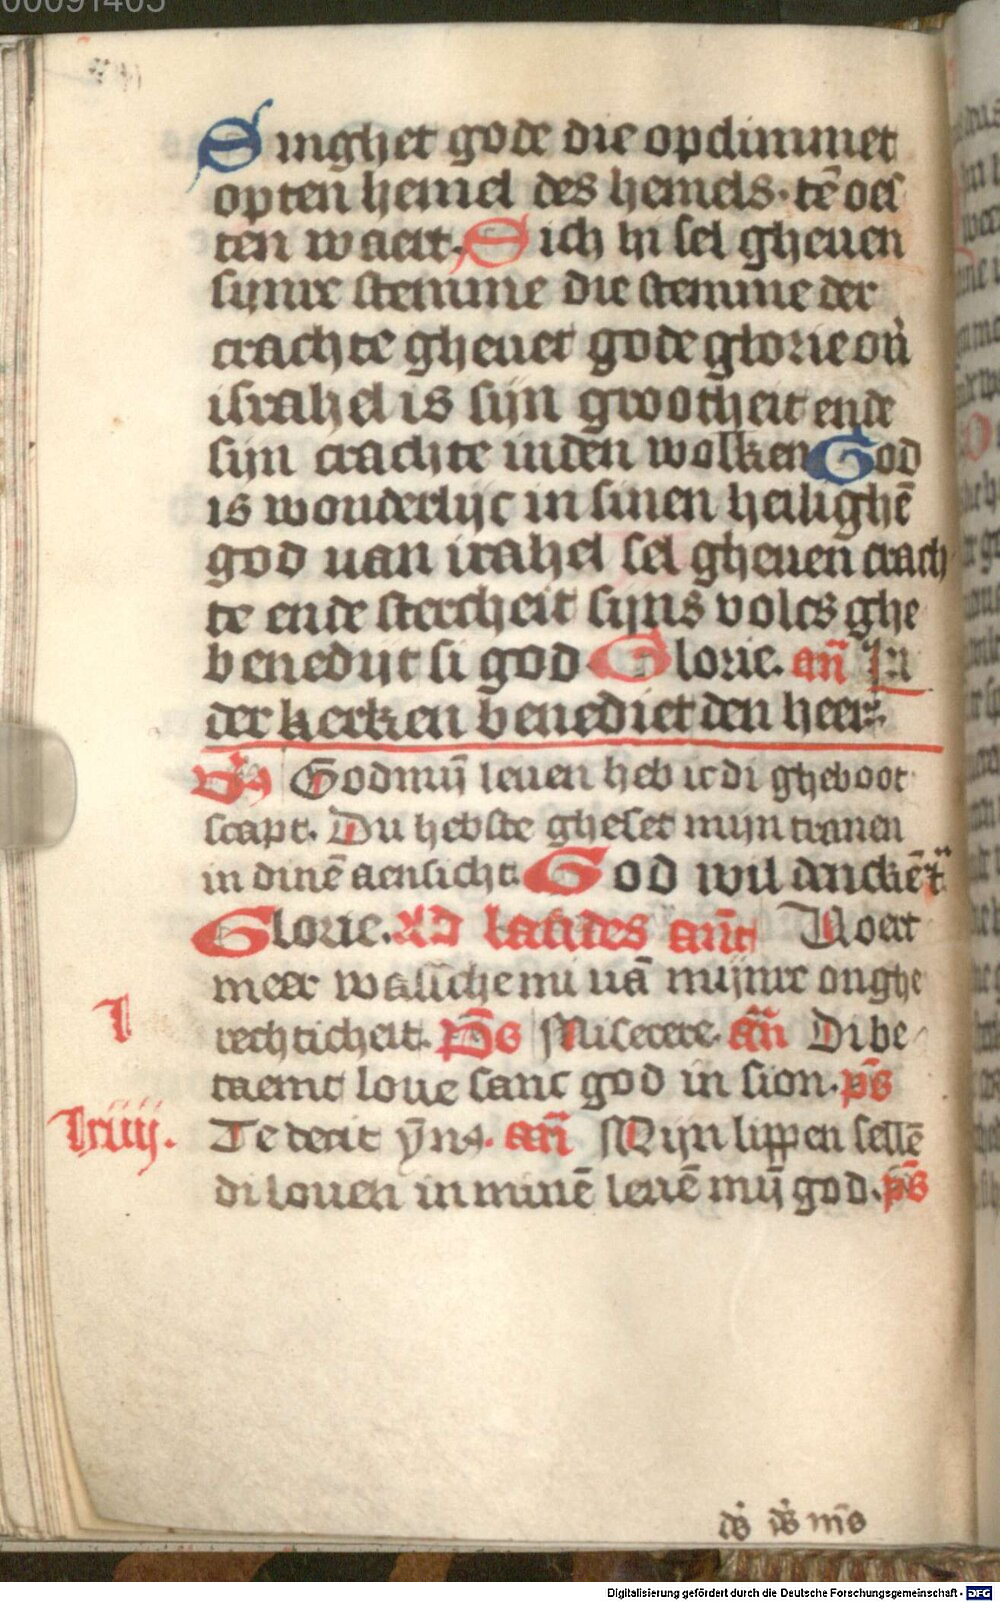 00091405
Singhet gode die opclimmet
opten hemel des hemels. tē oes
ten waert. Sich hi sel gheuen
sijnre stemme die stemme der
crachte gheuet gode glorie ou̇
israhel is sijn grootheit ende
sijn crachte inden wolken God
is wonderlijc in sinen heilighē
god uan irahel sel gheuen crach
te ende stercheit sijns volcs ghe
benedijt si god Glorie. an̄ In
der kerken benediet den heer
God mij̄ leuen heb ic di gheboot
scapt. Du hebste gheset mijn tranen
in dinē aensicht. God wil denckē
Glorie. Ad laudes an̄ Voert
meer wassche mi uā mijnre onghe
rechticheit. ps̄ Miserere. an̄ Di be
I
taemt loue sanc god in sion. ps̄
Te decet ȳn9. an̄ Mijn lippen sellē
lxiiij.
di louen in minē leuē mij̄ god. ps̄
ds̄ ds̄ ms̄
Digitalisierung gefördert durch die Deutsche Forschungsgemeinschaft - DFG